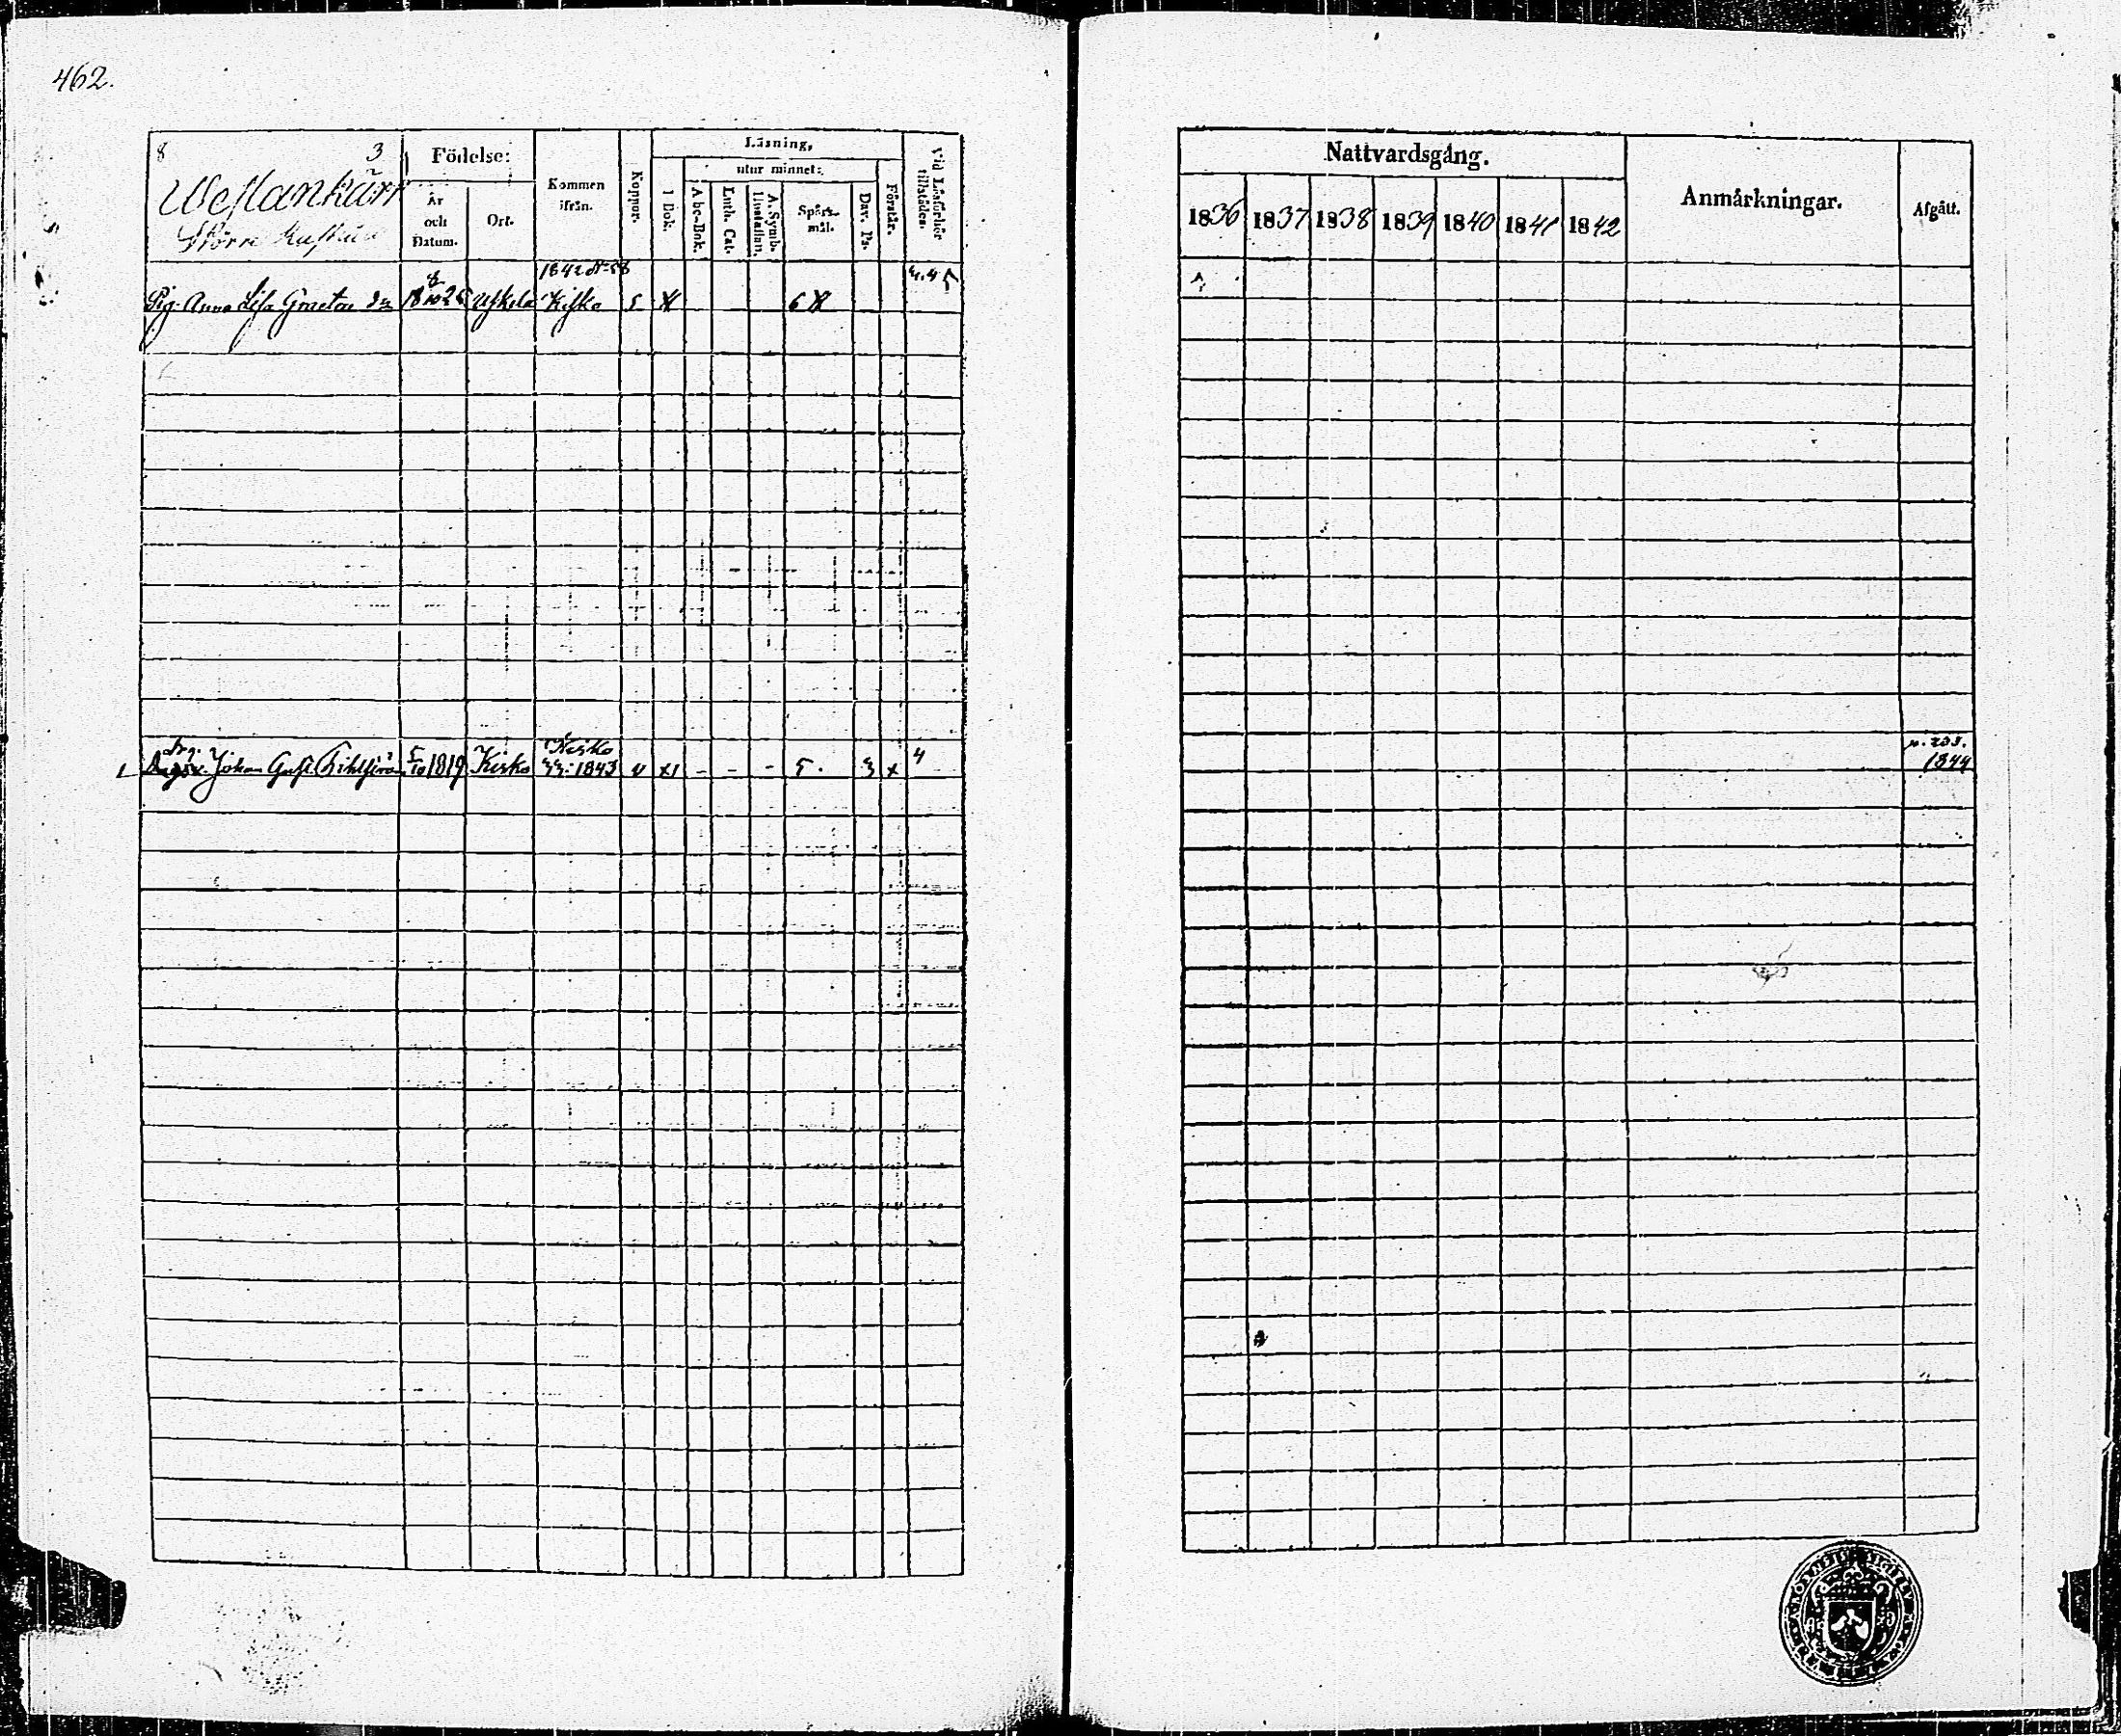 462.
8 3
Westankärr
Större Rusthåll
Födelse:
År
och
Datum.
Ort.
Kommen
ifrån.
Koppor.
Läsning,
I Bok.
utur minnet:
Abc-Bok.
Luth. Cat.
A. Symb.
Hustaflan.
Spörs-
mål.
Dav. Ps.
Förstår.
Vid Läsförhör
tillstädes.
Pig. Anna Lisa 18 8/10 26 Uskela 1842 Kisko 6
1 drg. Johan Gust. 5/10 1819 Kisko Kisko 1843 v x1 - - - 5. 3 x 4
Nattvardsgång.
1836 1837 1838 1839 1840 1841 1842
Anmärkningar.
Afgått.
1844